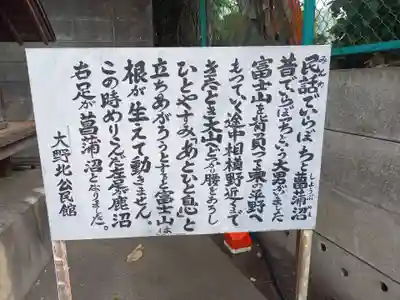 民話でいらぼっち 菖蒲沼
みんわ
しょうぶぬま
昔でいらぼっちという大男がいました
富士山を背負って東の平野へ
もっていく途中相模野近くまで
きたとき大山にどっかり腰をおろし
ひとやすみ、あとひと息」と
立ちあがろうとすると富士山は
根が生えて動きません。
この時めりこんだ左足が鹿沼
右足が菖蒲沼となりました。
大野北公民館